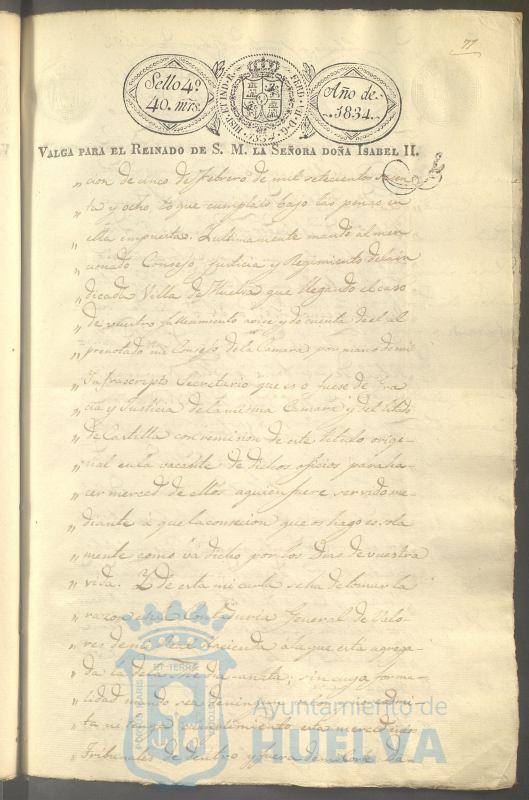 77
Sello 4º
40. mrs.
HISP. ET IND. R. FERD. VII. D. G.
Año de
1834.
VALGA PARA EL REINADO DE S. M. LA SEÑORA DOÑA ISABEL II.
„ cion de cinco de Febrero de mil setecientos
„ ta y ocho, lo que cumplais bajo las penas en
„ ella impuestas. Y ultimamente mando al men
„ cionado Consejo, Justicia y Regimiento de la in
„ dicada Villa de Huelva que llegando el caso
„ de vuestro fallecimiento avise y dé cuenta de el al
„ prenotado mi Consejo de la Camara por mano de mi
„ Infrascripto Secretario que es o fuese de Gra
„ cia y Justicia de la misma Camara y del Estado
„ de Castilla con remision de este Titulo origi
„ nal en la vacante de dichos oficios para ha
„ cer merced de ellos a quien fuere servido me
„ diante á que la concesion que os hago es sola
„ mente como va dicho por los Dias de vuestra
„ vida. Y de esta mi carta se ha de tomar la
„ razon en la Contaduria General de Valo
„ res de mi Real Hacienda a la que esta agrega
„ da la de la media annata; sin cuya forma
„ lidad mando sea de ningun valor y no se admi
„ ta ni tenga cumplimiento esta merced en los
„ Tribunales de dentro y fuera de mi Corte Da
PORTUS MARIS ET TERRÆ CUSTODIA
Ayuntamiento de
HUELVA